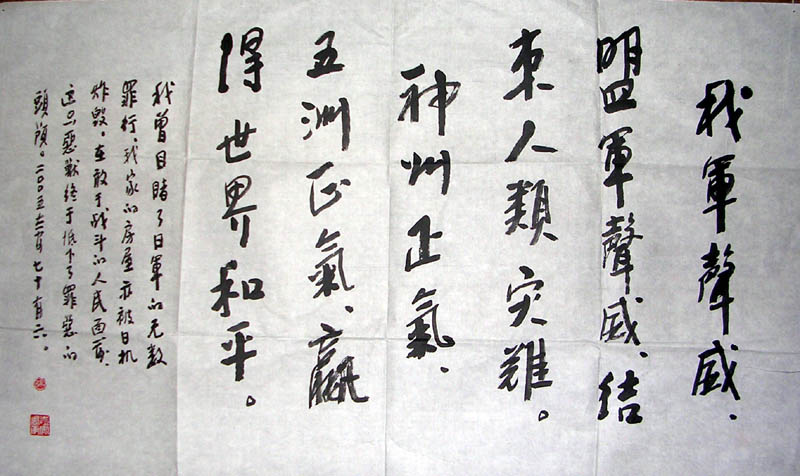 我軍聲威、
盟軍聲威、結
束人類災難。
神州正氣、
五洲正氣、贏
得世界和平。
我曾目睹了日軍的无数
罪行，我家的房屋亦被日机
炸毁。在敢于战斗的人民面前，
这只惡獸终于低下了罪惡的
頭顱。二〇〇五
七十有六。